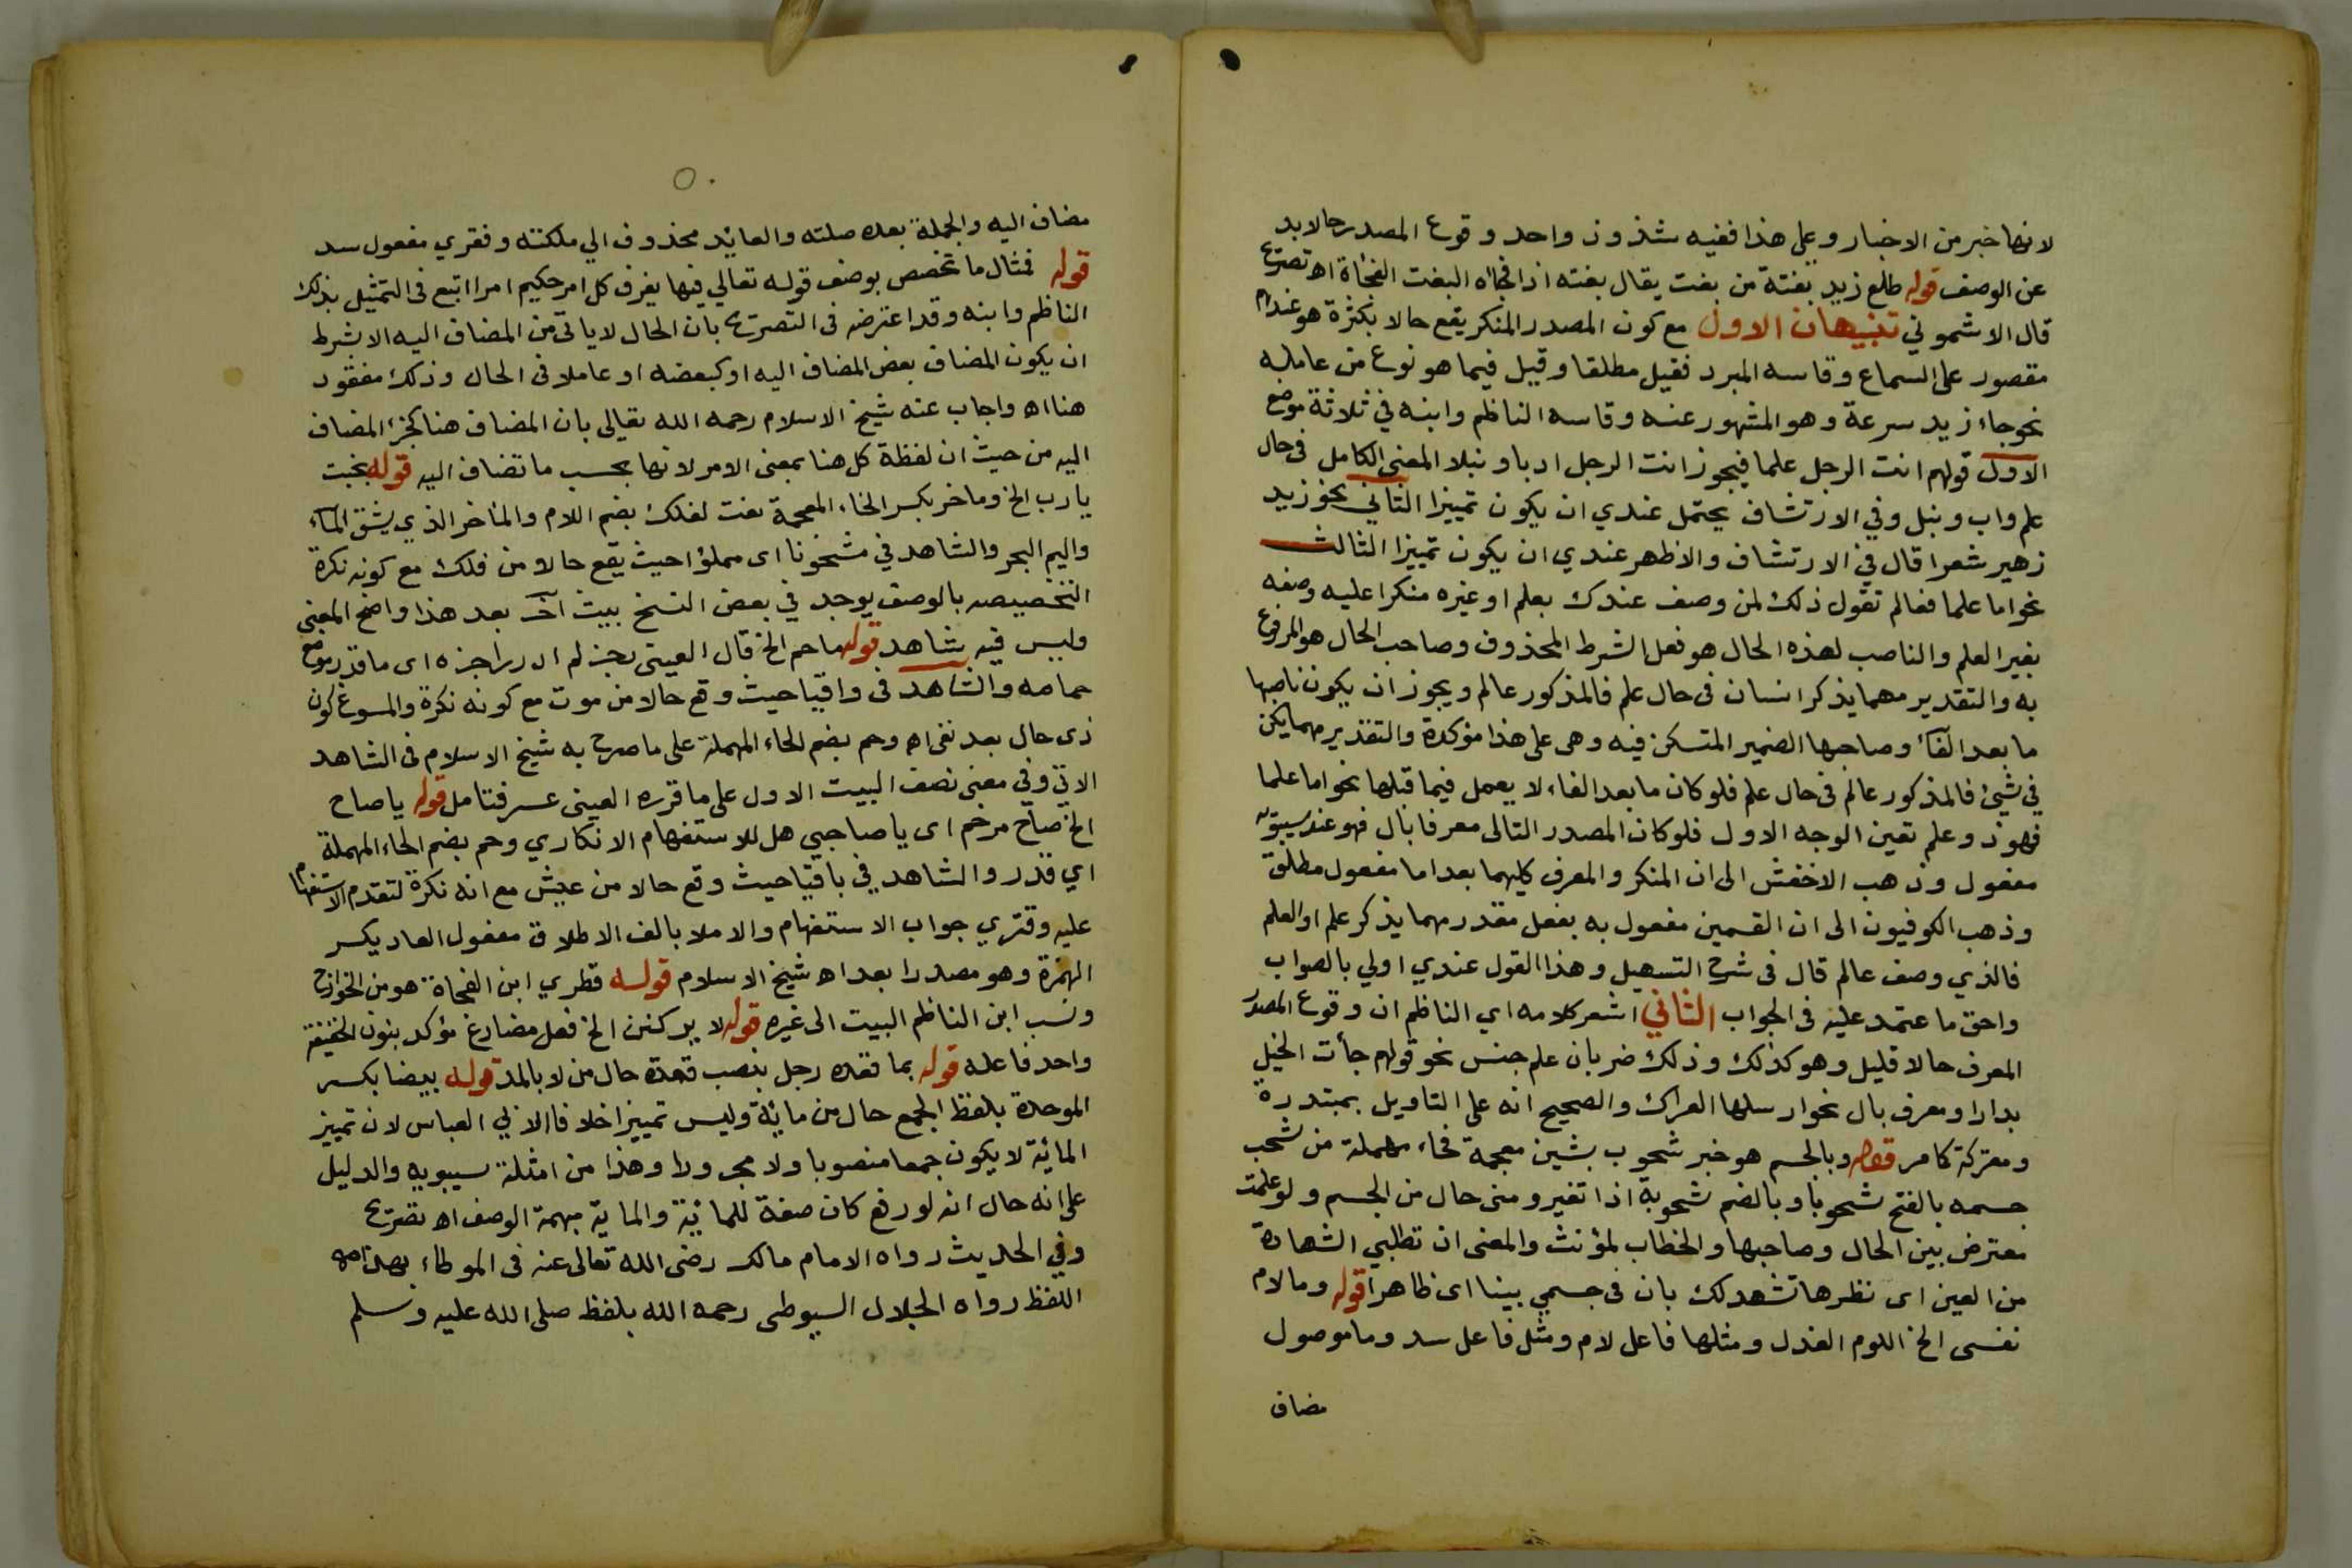 لانها خبر من الاخبار وعلى هذا ففيه شذوذ واحد وقوع المصدر حالا بد
عن الوصف قوله طلع زيد بغتة من بغت يقال بغته اذا فجأه البغت الفجأة اه تصريح
قال الاشموني تنبيهان الاول مع كون المصدر المنكر يقع حالا بكثرة هو عندهم
مقصور على السماع وقاسه المبرد فقيل مطلقا وقيل فيما هو نوع من عامله
نحو جاء زيد سرعة وهو المشهور عنه وقاسه الناظم وابنه في ثلاثة مواضع
الاول قولهم انت الرجل علما فيجوز انت الرجل ادبا ونبلا المعنى الكامل في حال
علم واب ونبل وفي الارتشاف يحتمل عندي ان يكون تمييزا الثاني نحو زيد
زهير شعرا قال في الارتشاف والاظهر عندي ان يكون تمييزا الثالث
نحو اما علما فعالم تقول ذلك لمن وصف عندك بعلم او غيره منكرا عليه وصفه
بغير العلم والناصب لهذه الحال هو فعل الشرط المحذوف وصاحب الحال هو المرفوع
به والتقدير مهما يذكر انسان في حال علم فالمذكور عالم ويجوز ان يكون ناصبها
ما بعد الفآء وصاحبها الضمير المتسكن فيه وهى على هذا مؤكدة والتقدير مهما يكن
في شئ فالمذكور عالم في حال علم فلو كان ما بعد الفاء لا يعمل فيما قبلها نحو اما علما
فهو ذو علم تعين الوجه الاول فلو كان المصدر التالى معرفا بال فهو عند سيبويه
مفعول وذهب الاخفش الى ان المنكر والمعرف كليهما بعد اما مفعول مطلق
وذهب الكوفيون الى ان القسمين مفعول به بفعل مقدر مهما يذكر علم او العلم
فالذي وصف عالم قال فى شرح التسهيل وهذا القول عندي اولي بالصواب
واحق ما عتمد عليه فى الجواب الثاني اشعر كلامه اي الناظم ان وقوع المصدر
المعرف حالا قليل وهو كذلك وذلك ضربان علم جنس نحو قولهم جأت الخيل
بدارا ومعرف بال نحو ارسلها العراك والصحيح انه على التاويل بمبتدرة
ومعتركة كامر قوله وبالجسم هو خبر شحوب بشين معجمة فحاء مهملة من شحب
جسمه بالفتح شحوبا وبالضم شحوبة اذا تغير ومنى حال من الجسم ولو علمت
معترض بين الحال وصاحبها والخطاب لمؤنث والمعنى ان تطلبي الشهادة
من العين اى نظرها تشهد لك بان فى جسمي بينا اى ظاهرا قوله وما لام
نفسى الخ اللوم العذل ومثلها فاعل لام ومثل فاعل سد وما موصول
مضاف
مضاف اليه والجملة بعده صلته والعايد محذوف الي ملكته وفقري مفعول سد
قوله فمثال ما تخصص بوصف قوله تعالي فيها يفرق كل امر حكيم امرا اتبع فى التمثيل بذلك
الناظم وابنه وقد اعترضه فى التصريح بان الحال لا ياتى من المضاف اليه الا بشرط
ان يكون المضاف بعض المضاف اليه او كبعضه او عاملا فى الحال وذلك مفقود
هنا اه واجاب عنه شيخ الاسلام رحمه الله تعالى بان المضاف هنا كجزء المضاف
اليه من حيث ان لفظة كل هنا بمعنى الامر لانها بحسب ما تضاف اليه قوله نجيت
يا رب الخ وماخر بكسر الخاء المعجمة نعت لفلك بضم اللام والماخر الذي يشق المآء
واليم البحر والشاهد في مشحونا اى مملؤا حيث يقع حالا من فلك مع كونه نكرة
التخصيصه بالوصف يوجد في بعض النسخ بيت آخر بعد هذا واضح المعنى
وليس فيه بشاهد قوله ما حم الخ قال العينى رجز لم ادر راجزه اى ما قدر موضع
حمامه والشاهد فى واقيا حيث وقع حالا من موت مع كونه نكرة والمسوغ كون
ذى حال بعد نفى اه وحم بضم الحاء المهملة على ما صرح به شيخ الاسلام فى الشاهد
الاتي وفي معنى نصف البيت الاول على ما قرره العينى عسر فتامل قوله يا صاح
الخ صاح مرخم اى يا صاحبي هل للاستفهام الانكاري وحم بضم الحاء المهملة
اي قدر والشاهد في باقيا حيث وقع حالا من عيش مع انه نكرة لتقدم الاستفهام
عليه وفترى جواب الاستفهام والاملا بالف الاطلاق مفعول العاد بكسر
الهمزة وهو مصدر ابعد اه شيخ الاسلام قوله قطري ابن الفجاة هو من الخوازح
ونسب ابن الناظم البيت الى غيره قوله لا يركنن الخ فعل مضارع مؤكد بنون الخفيفة
واحد فاعله قوله بما قعده رجل بنصب قعدة حال من لا بالمد قوله بيضا بكسر
الموحدة بلفظ الجمع حال من ماية وليس تمييزا خلافا لابي العباس لان تمييز
المائة لا يكون جمعا منصوبا ولا مجرورا وهذا من امثلة سيبويه والدليل
على انه حال انه لو رفع كان صفة للمائة والماية مبهمة الوصف اه تصريح
وفي الحديث رواه الامام مالك رضى الله تعالى عنه فى الموطاء بهذا
اللفظ رواه الجلال السيوطى رحمه الله بلفظ صلى الله عليه وسلم